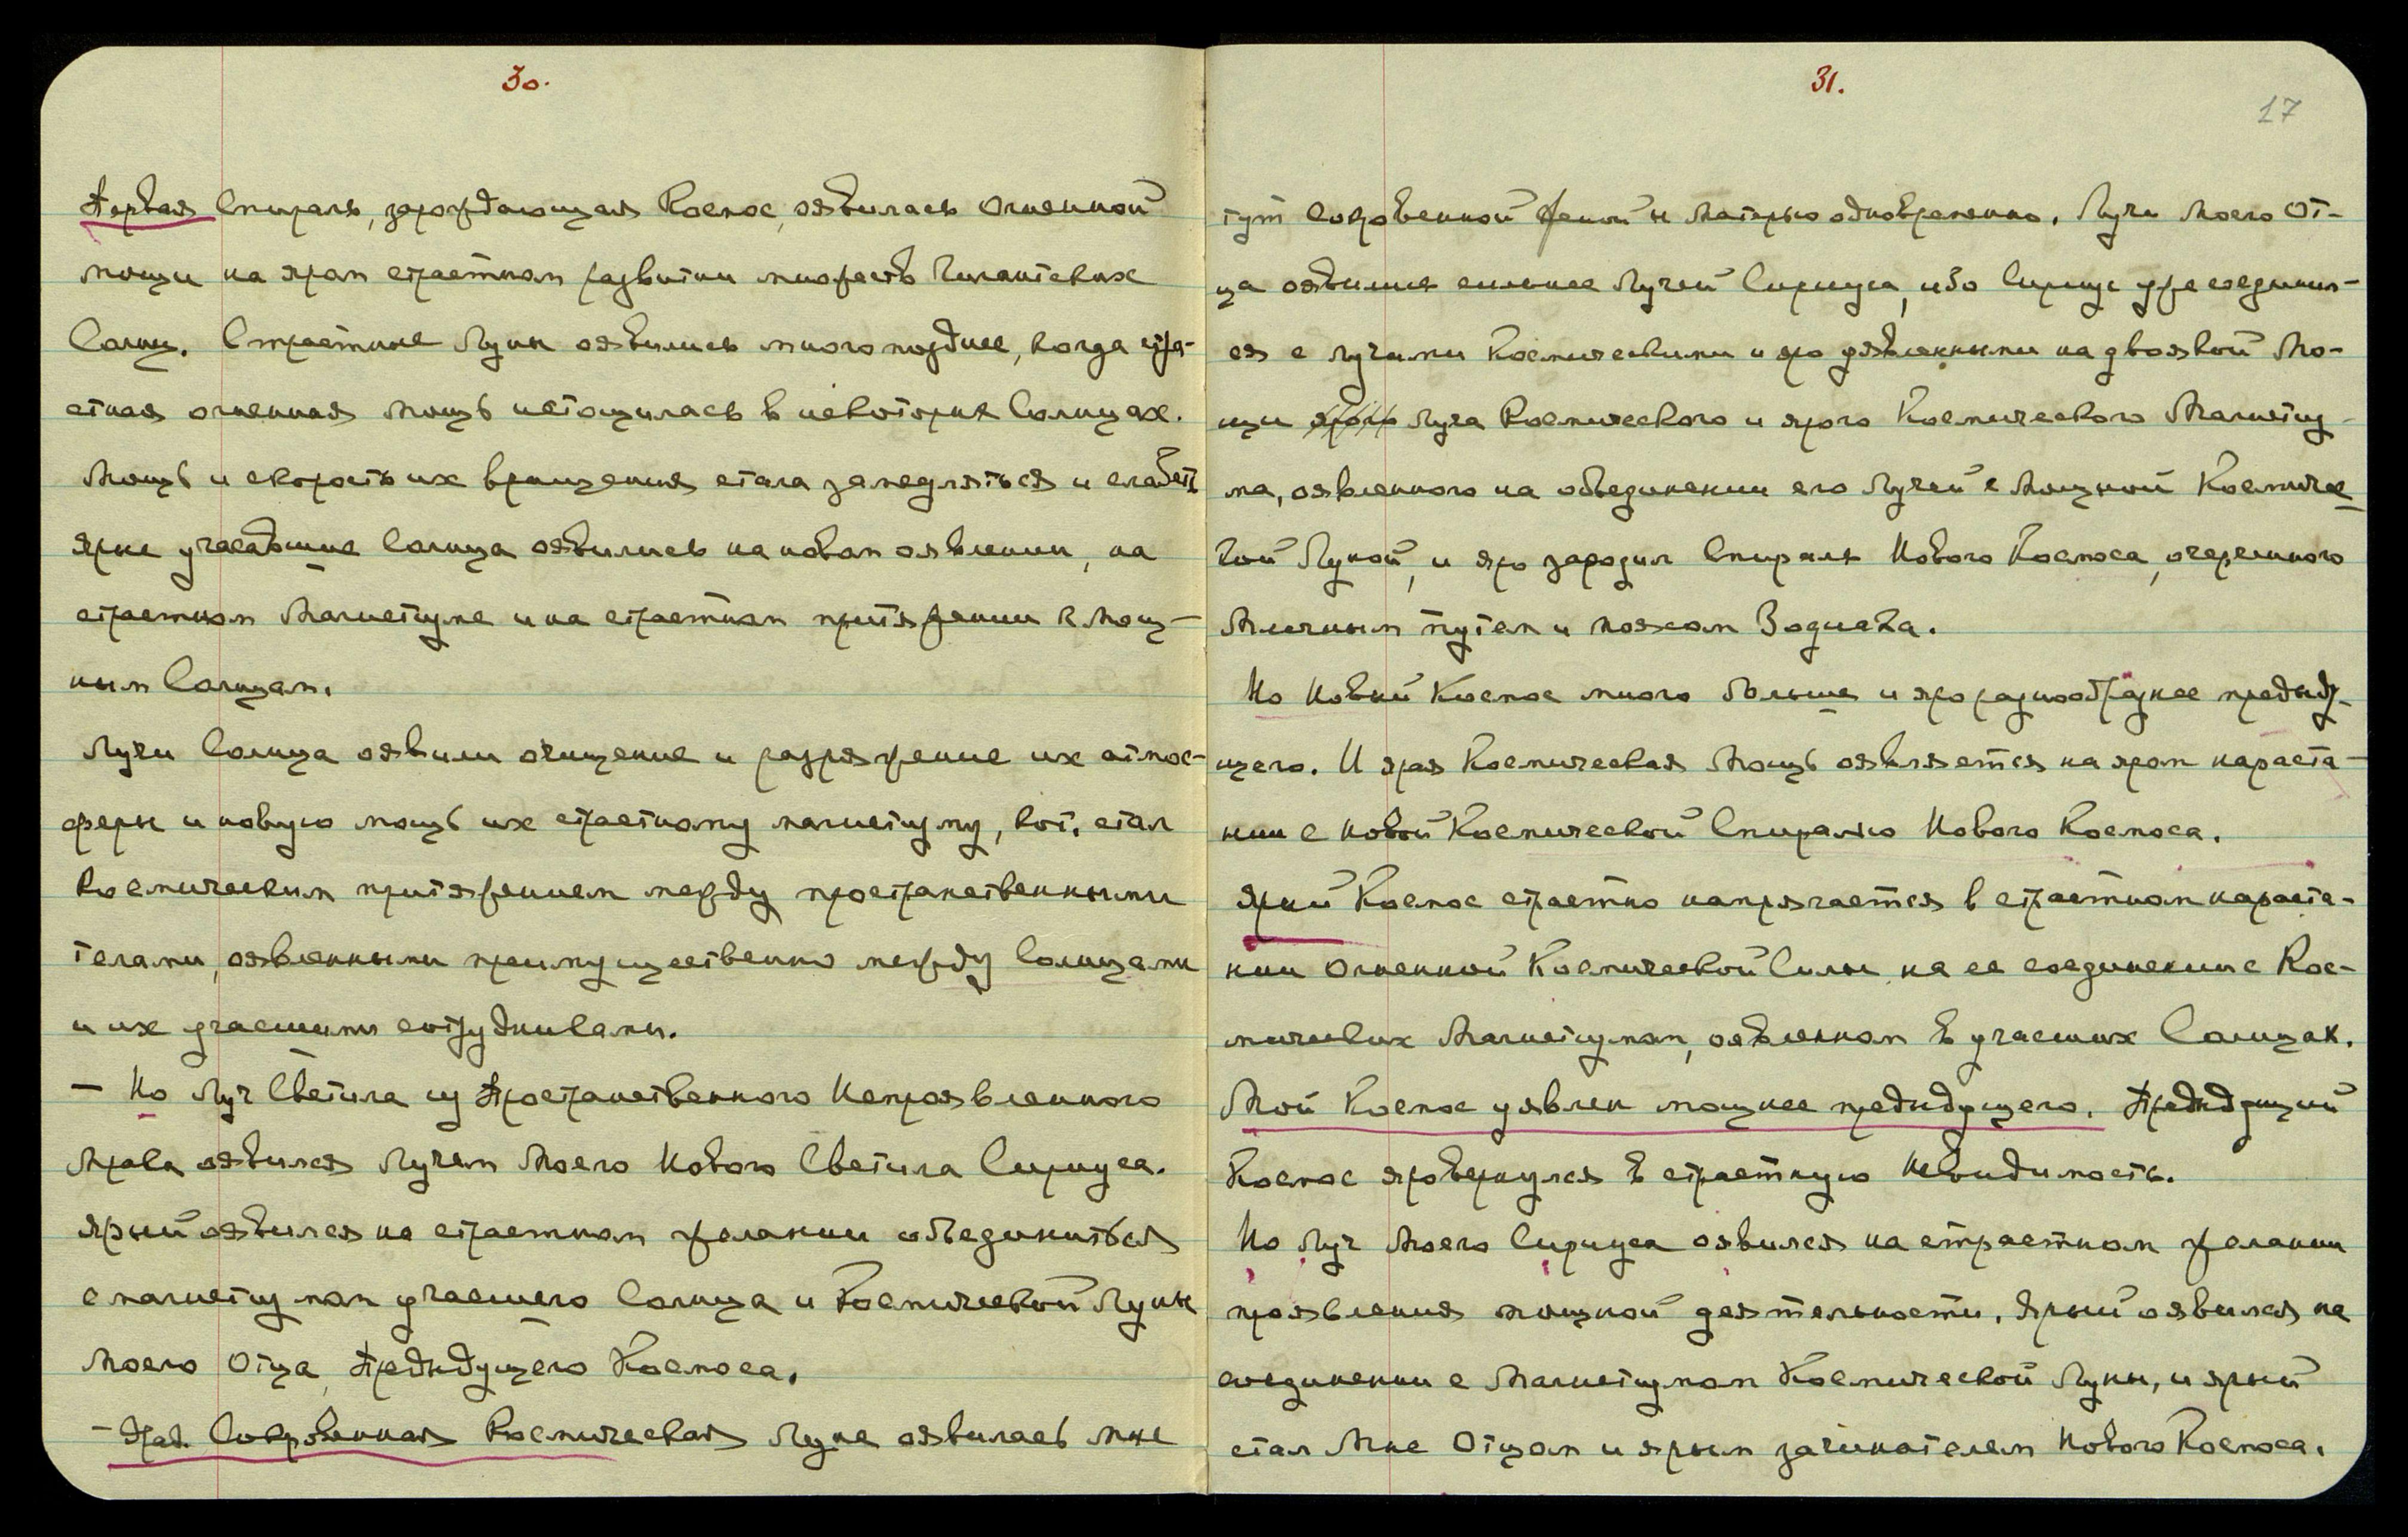 30.
Первая Спираль, зарождающая Космос, оявилась огненной
мощи на яром страстном развитии множеств Гигантских
Солнц. Страстные Луны оявились много позднее, когда стра-
стная огненная мощь истощилась в некоторых Солнцах.
Мощь и скорость их вращения стала замедляться и слабеть
Ярые угасавшие Солнца оявились на новом оявлении, на
страстном Магнетизме и на страстном притяжении к мощ-
ным Солнцам.
Лучи Солнца оявили очищение и разряжение их атмос-
феры и новую мощь их страстному магнетизму, кот. стал
Космическим притяжением между пространственными
телами, оявленными преимущественно между Солнцами
и их угасшими сотрудниками.
— Но Луч Светила из Пространственного Непроявленного
Мрака оявился Лучем Моего Нового Светила Сириуса.
Ярый оявился на страстном желании объединиться
с магнетизмом угасшего Солнца и Космической Луны
Моего Отца, Предыдущего Космоса.
— Сокровенная Космическая Луна оявилась мне
31.
17
тут Сокровенной Женой и Матерью одновременно. Лучи Моего От-
ца оявились сильнее Лучей Сириуса, ибо Сириус уже соединил-
ся с лучами Космическими и яро уявленными на двоякой Мо-
щи Луча Космического и ярого Космического Магнетиз-
ма, оявленного на объединении его Лучей с Мощной Космичес
кой Луной, и яро зародил Спираль Нового Космоса, очерченного
Млечным путем и поясом Зодиака.
Но Новый Космос много больше и яро разнообразнее предыду-
щего. И ярая Космическая Мощь оявляется на яром нараста-
нии с новой Космической Спиралью Нового Космоса.
Ярый Космос страстно напрягается в страстном нараста-
нии Огненной Космической Силы на ее соединение с Кос-
мических Магнетизмом, оявленном в угасших Солнцах.
Мой Космос уявлен мощнее предыдущего. Предыдущий
Космос яро вернулся в страстную Невидимость.
Но Луч Моего Сириуса оявился на страстном желании
проявления мощной деятельности. Ярый оявился на
соединении с Магнетизмом Космической Луны, и ярый
стал Мне Отцом и ярым зачинателем Нового Космоса.